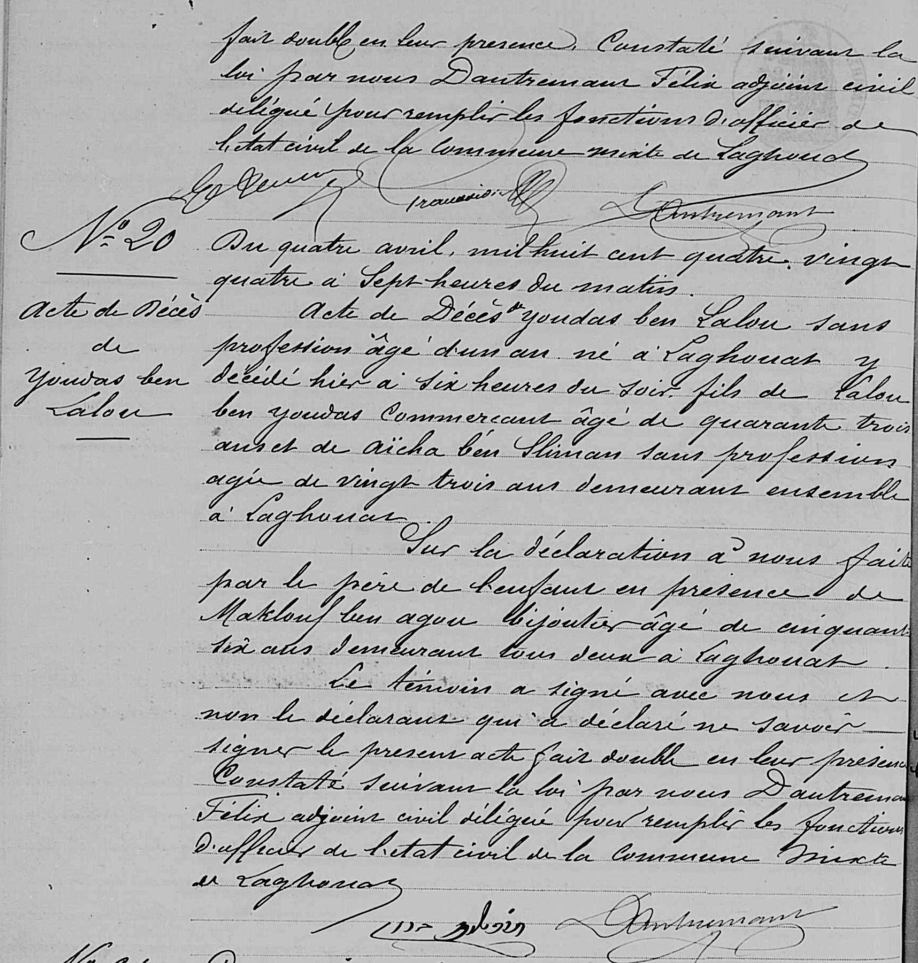 fait double en leur presence. Constaté suivant la
loi par nous Dautremant Félix adjoint civil
délégué pour remplir les fonctions d'officier de
l'etat civil de la Commune mixte de Laghouat
Dautremant
N° 20
Acte de Décès
de
Youdas ben
Lalou
Du quatre avril, mil huit cent quatre. vingt
quatre à Sept heures du matin.
Acte de Décès de Youdas ben Lalou sans
profession âgé d'un an né à Laghouat y
décédé hier à six heures du soir. fils de Lalou
ben youdas Commerçant âgé de quarante trois
ans et de Aïcha ben Sliman sans profession
agée de vingt trois ans demeurant ensemble
à Laghouat.
Sur la déclaration à nous faite
par le père de l'enfant en présence de
Maklouf ben agou bijoutier âgé de cinquant
six ans demeurant tous deux à Laghouat.
Le témoin a signé avec nous et
non le déclarant qui a déclaré ne savoir
signer le present acte fait double en leur présence
Constaté suivant la loi par nous Dautreman
Félix adjoint civil délégué pour remplir les fonctions
d'officier de l'etat civil de la Commune Mixte
de Laghouat
Dautremant